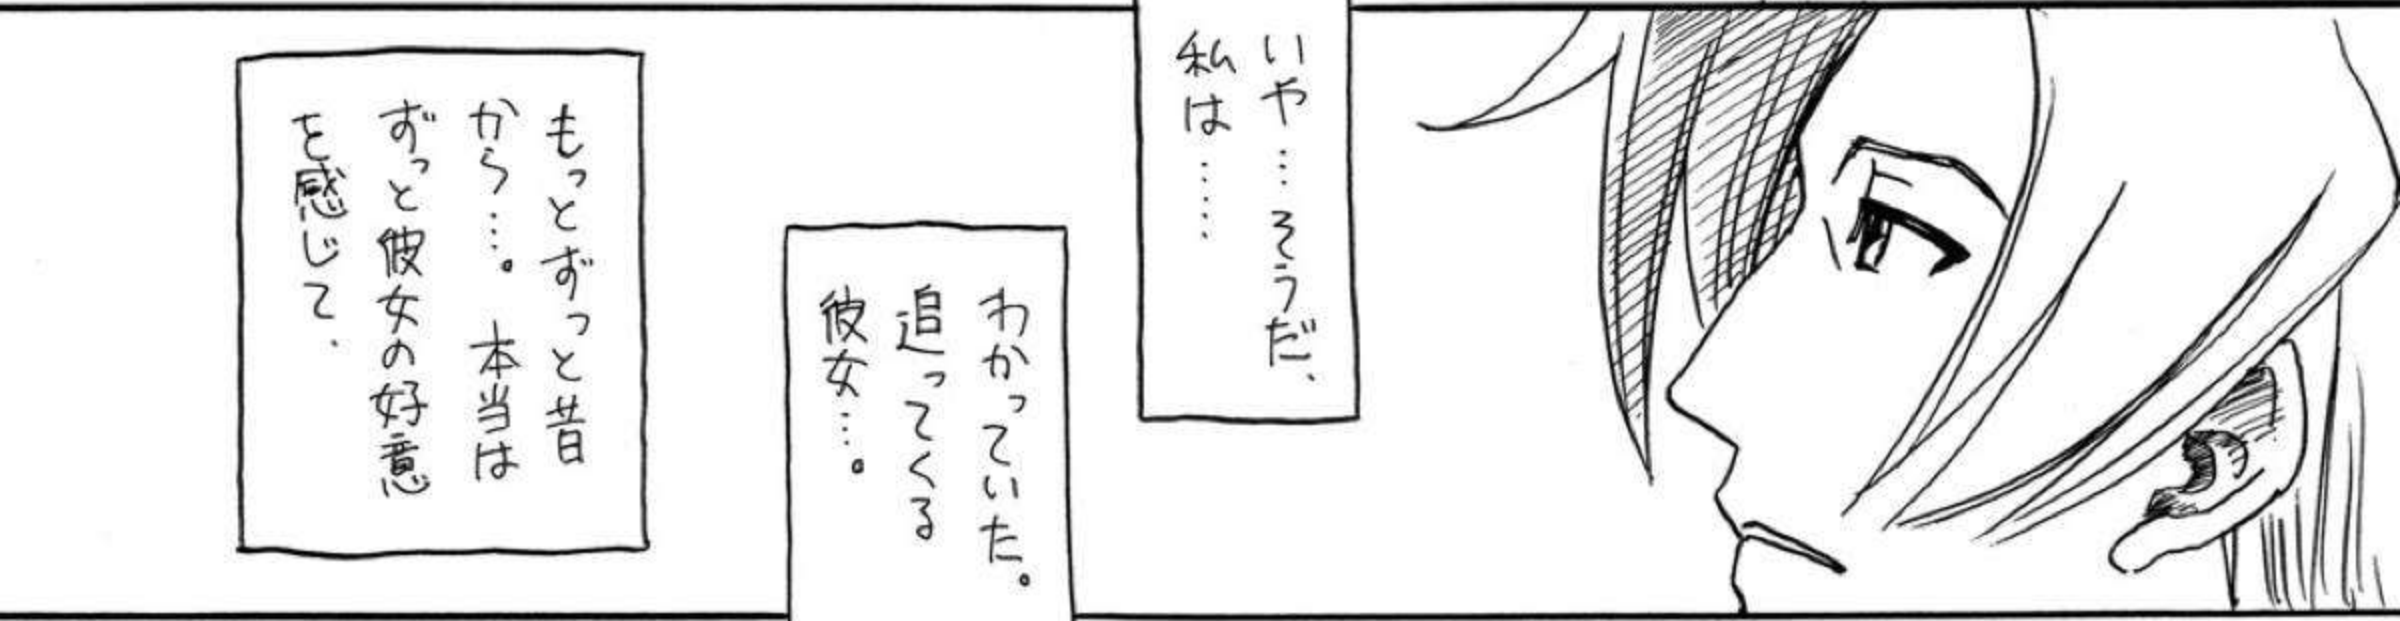 いや…そうだ、
私は……
わかっていた。
追ってくる
彼女…。
もっとずっと昔
から…。 本当は
ずっと彼女の好意
を感じて、